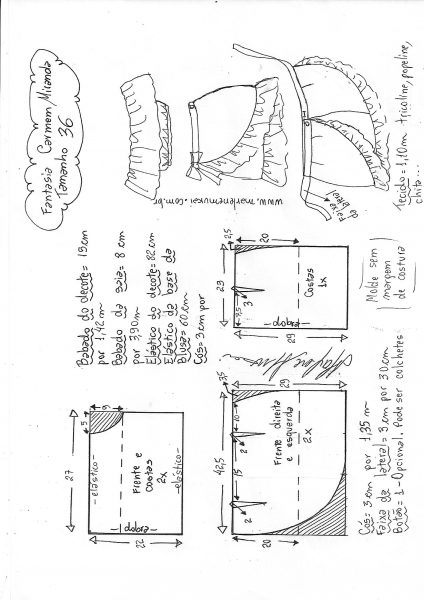 Fantasia Carmem Miranda
Tamanho 36
www.marlenemukai.com.br
Faixa
do babado
Tecido = 1,10m tricoline, popeline,
chita...
Babado do decote = 19cm
por 1,42m
Babado da saia = 8 cm
por 3,90m
Elástico do decote = 82cm
Elástico da base da
Blusa = 60cm
Cós = 3cm por
2,5
20
29
3,5
3
Costas
1x
dobra
29
Molde sem
margem
de costura
27
5
9
elástico
Frente e
costas
2x
elástico
dobra
22
3,5
29
42,5
10
15
2
2
Frente direita
e esquerda
2x
20
Cós = 3cm por 1,35 m
Faixa da lateral = 3cm por 30cm
Botão = 1 - Opcional. Pode ser colchetes.